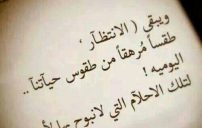 ويبقى ( الانتظار ،
طقسًا مُرهقاً من طقوس حياتنا..
اليوميه !
لتلك الاحلام التي لانبوح بها